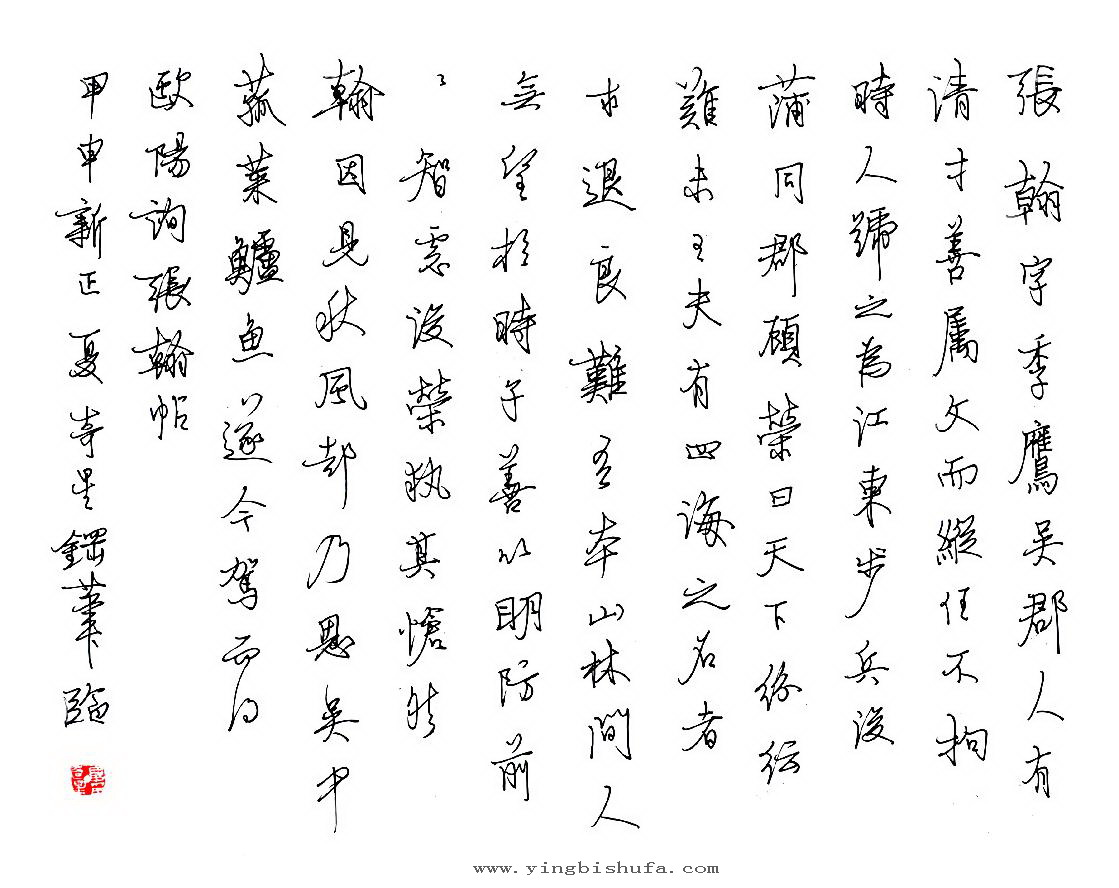 張翰字季鷹吳郡人有
清才善属文而縱任不拘
時人號之為江東步兵後
蒲同郡顧榮曰天下紛紜
難未已夫有四海之名者
求退良難吾本山林間人
無望於時子善以明防前
以智慮後榮執其愴然
翰因見秋風起乃思吳中
菰菜鱸魚遂命駕而归
歐陽詢張翰帖
甲申新正夏星鋼筆臨
www.yingbishufa.com